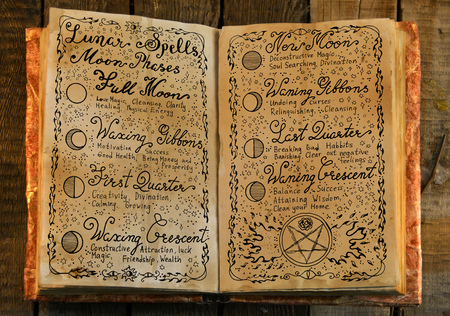 Lunar Spells
Moon Phases
Full Moon
Love Magic, Cleansing, Clarity
Healing Physical Energy
Waxing Gibbons
Motivation Success
Good Health, Being Money and
Prosperity
First Quarter
Creativity, Divination,
Calming, Growing
Waxing Crescent
Constructive Attraction, luck
Magic, Friendship, Wealth
New Moon
Deconstructive Magic,
Soul Searching, Divination
Waning Gibbons
Undoing curses
Relinquishing, Cleansing
Last Quarter
Breaking Bad Habbits
Banishing, Clear out negative
feelings
Waning Crescent
Balance, Success,
Attaining Wisdom,
Clean your Home.